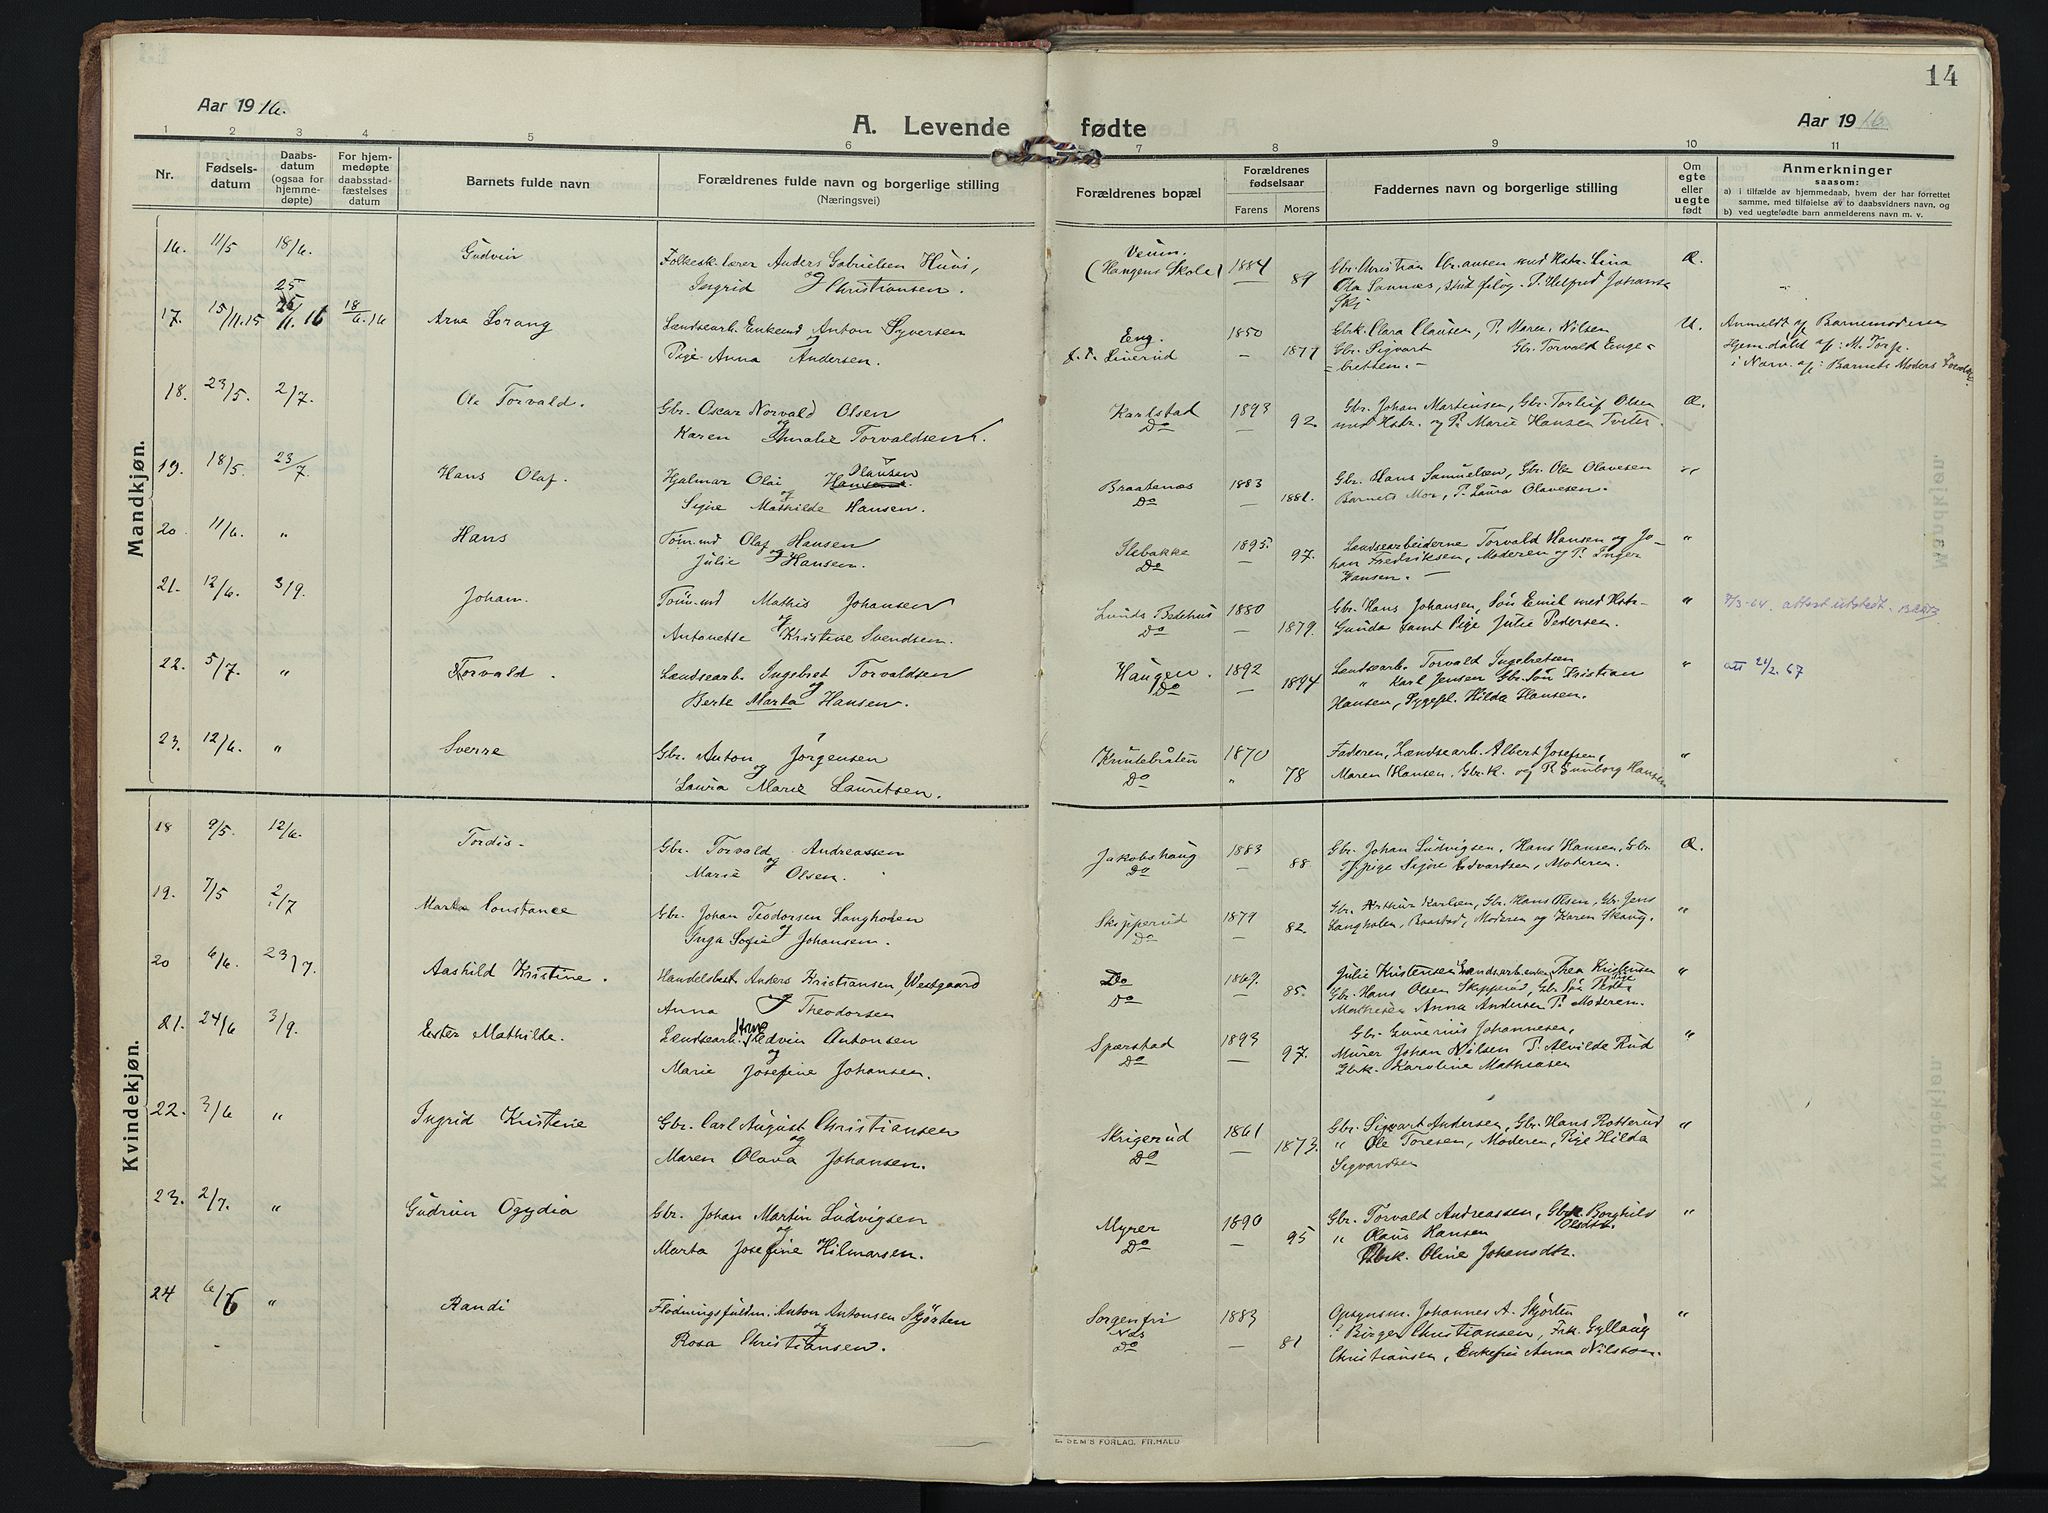 14
Aar 1916.
A. Levende fødte
Aar 1916
1 2 3 4 5 6 7 8 9 10 11
Nr.
Fødsels-
datum
Daabs-
datum
(ogsaa for
hjemme-
døpte)
For hjem-
medøpte
daabsstad-
fæstelses
datum
Barnets fulde navn
Forældrenes fulde navn og borgerlige stilling
(Næringsvei)
Forældrenes bopæl
Forældrenes
fødselsaar
Farens Morens
Faddernes navn og borgerlige stilling
Om
egte
eller
uegte
født
Anmerkninger
saasom:
a) i tilfælde av hjemmedaab, hvem der har forrettet
samme, med tilføielse av to daabsvidners navn, og
b) ved uegtefødte barn anmelderens navn m. v.
Mandkjøn.
16. 11/5 18/6. Gudvin Folkesk. lærer Anders Gabrielsen Huus, Veum. 1884 Gbr. Christian med Hstr. Lina Æ.
og Ingrid Christiansen. (Haugens Skole) 89 Ola Sannæs, stud. filog. P. Helfred Johansen
Ski
25
17. 15/11.15 16 18/6.16 Arne Lorang Lændsearb. Enkemd Anton Syversen Eng. 1850 Gbk. Clara Clausen, P. Maren Nilsen U. Anmeldt af Barnemoderen
og Pige Anna Andersen. Liierud — 1877 Gbr. Sigvart Gbr. Torvald Enge- Hjem.døbt af: M. Torp.
brettsen.- i Nærv. af: Barnets Moders
18. 23/5. 2/7. Ole Torvald. Gbr. Oscar Norvald Olsen Karlstad 1893 Gbr. Johan Martinsen, Gbr. Torleif Olsen Æ.
og Karen Amalie Torvaldsen. Do 92. med Hstr. og P. Marie Hansen Tveter.
19. 18/5. 23/7 Hans Olaf. Hjalmar Olai Hansen Olausen Braatenæs 1883 Gbr. Hans Samuelsen, Gbr. Ole Olavesen "
og Signe Mathilde Hansen. Do 1881. Barnets Mor, P. Laura Olavesen.
20 11/6. " Hans Tøm.md Olaf Hansen Ilebakke 1895. Lændsearbeiderne Torvald Hansen og Jo- "
og Julie Hansen. Do — 97. han Fredriksen, Moderen og P. Inger
Hansen. —
21. 12/6. 3/9. Johan. Tøm.md Mathis Johansen Lunds Bedehus 1880 Gbr. Hans Johansen, Søn Emil med Hstr. " 7/3-64. attest utstedt.
og Antonette Kristine Svendsen. Do — 1879. Gunda samt Pige Julie Pedersen.
22. 5/7. " Torvald. Lændsearb. Ingebret Torvaldsen Haugen. 1892 Lændsearb. Torvald Ingebretsen " att 21/2. 67
og Berte Marta Hansen. Do — 1894 " Karl Jensen Gbr.Søn Kristian
Hansen, Sygepl. Hilda Hansen.
23. 12/6. " Sverre Gbr. Anton Jørgensen Knutebråten 1870 Faderen, Lændsearb. Albert Josefsen, "
og Laura Marie Lauritsen. Do " 78 Maren Hansen. Gbr.k. og P. Gunborg Hansen
Kvindekjøn.
18 9/5. 12/6. Tordis- Gbr. Torvald Andreassen Jakobshaug 1883 Gbr. Johan Ludvigsen, Hans Hansen, Gbr. Æ.
og Marie Olsen. Do — 88 Tj.pige Signe Edvardsen, Moderen.
19. 7/5 2/7 Marta Constance Gbr. Johan Teodorsen Langholen Skipperud 1879 Gbr. Arthur Karlsen, Gbr. Hans Olsen, Gbr. Jens "
og Inga Sofie Johansen. Do — 82. Langholen, Baastad, Moderen og Karen Skaug.
20 6/6. 23/7. Aashild Kristine. Handelsbest. Anders Kristiansen, Westgaard Do 1869. Julie Kristensen Lændsearb.enken, Thea Kristensen "
og Anna Theodorsen Do — 85. Gbr. Hans Olsen Skipperud, Gbr Søn Peder
Mathisen Anna Andersen P. Moderen.
21. 24/6 3/9. Ester Mathilde. Lændsearb. Arne Edvin Antonsen Spærstad 1893 Gbr. Gunerius Johannesen, "
og Marie Josefine Johansen. Do — 97. Murer Johan Nilsen P. Alvilde Rud
Gbrk. Karoline Mathiasen
22. 3/6 " Ingrid Kristine Gbr. Carl August Christiansen Skrigerud 1861 Gbr. Sigvart Andersen, Gbr. Hans Rotterud "
og Maren Olava Johansen. Do — 1873. " Ole Toresen, Moderen, Pige Hilda
Sigvardsen
23. 2/7. " Gudrun Ogydia Gbr. Johan Martin Ludvigsen Myrer 1890 Gbr. Torvald Andreassen, Gbrk. Borghild Olsdtr. "
og Marta Josefine Hilmarsen. Do — 95 " Claus Hansen
Gbrk. Oline Johansdtr.
24 6/6 " Randi Flødningsfuldm. Anton Antonsen Skjørten Sorgenfri 1883 Opsynsm. Johannes A. Skjørten "
og Rosa Christiansen. Nds Do — 81 Birger Christiansen, Frk. Gyllaug
Christiansen, Enkefru Anna Nilsson.
E. SEM'S FORLAG, FR.HALD